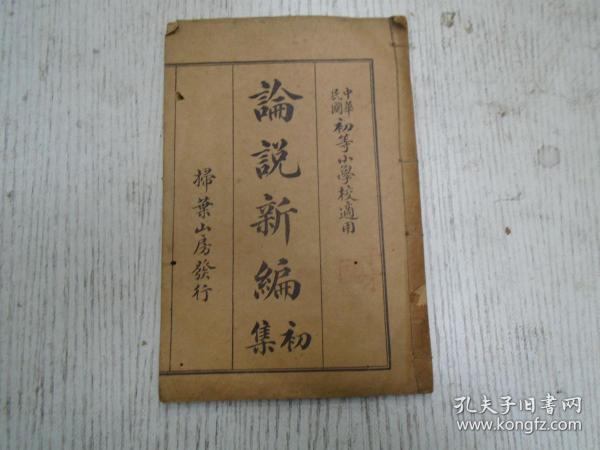 中華民國初等小學校適用
論說新編初集
掃葉山房發行
孔夫子旧书网
www.kongfz.com